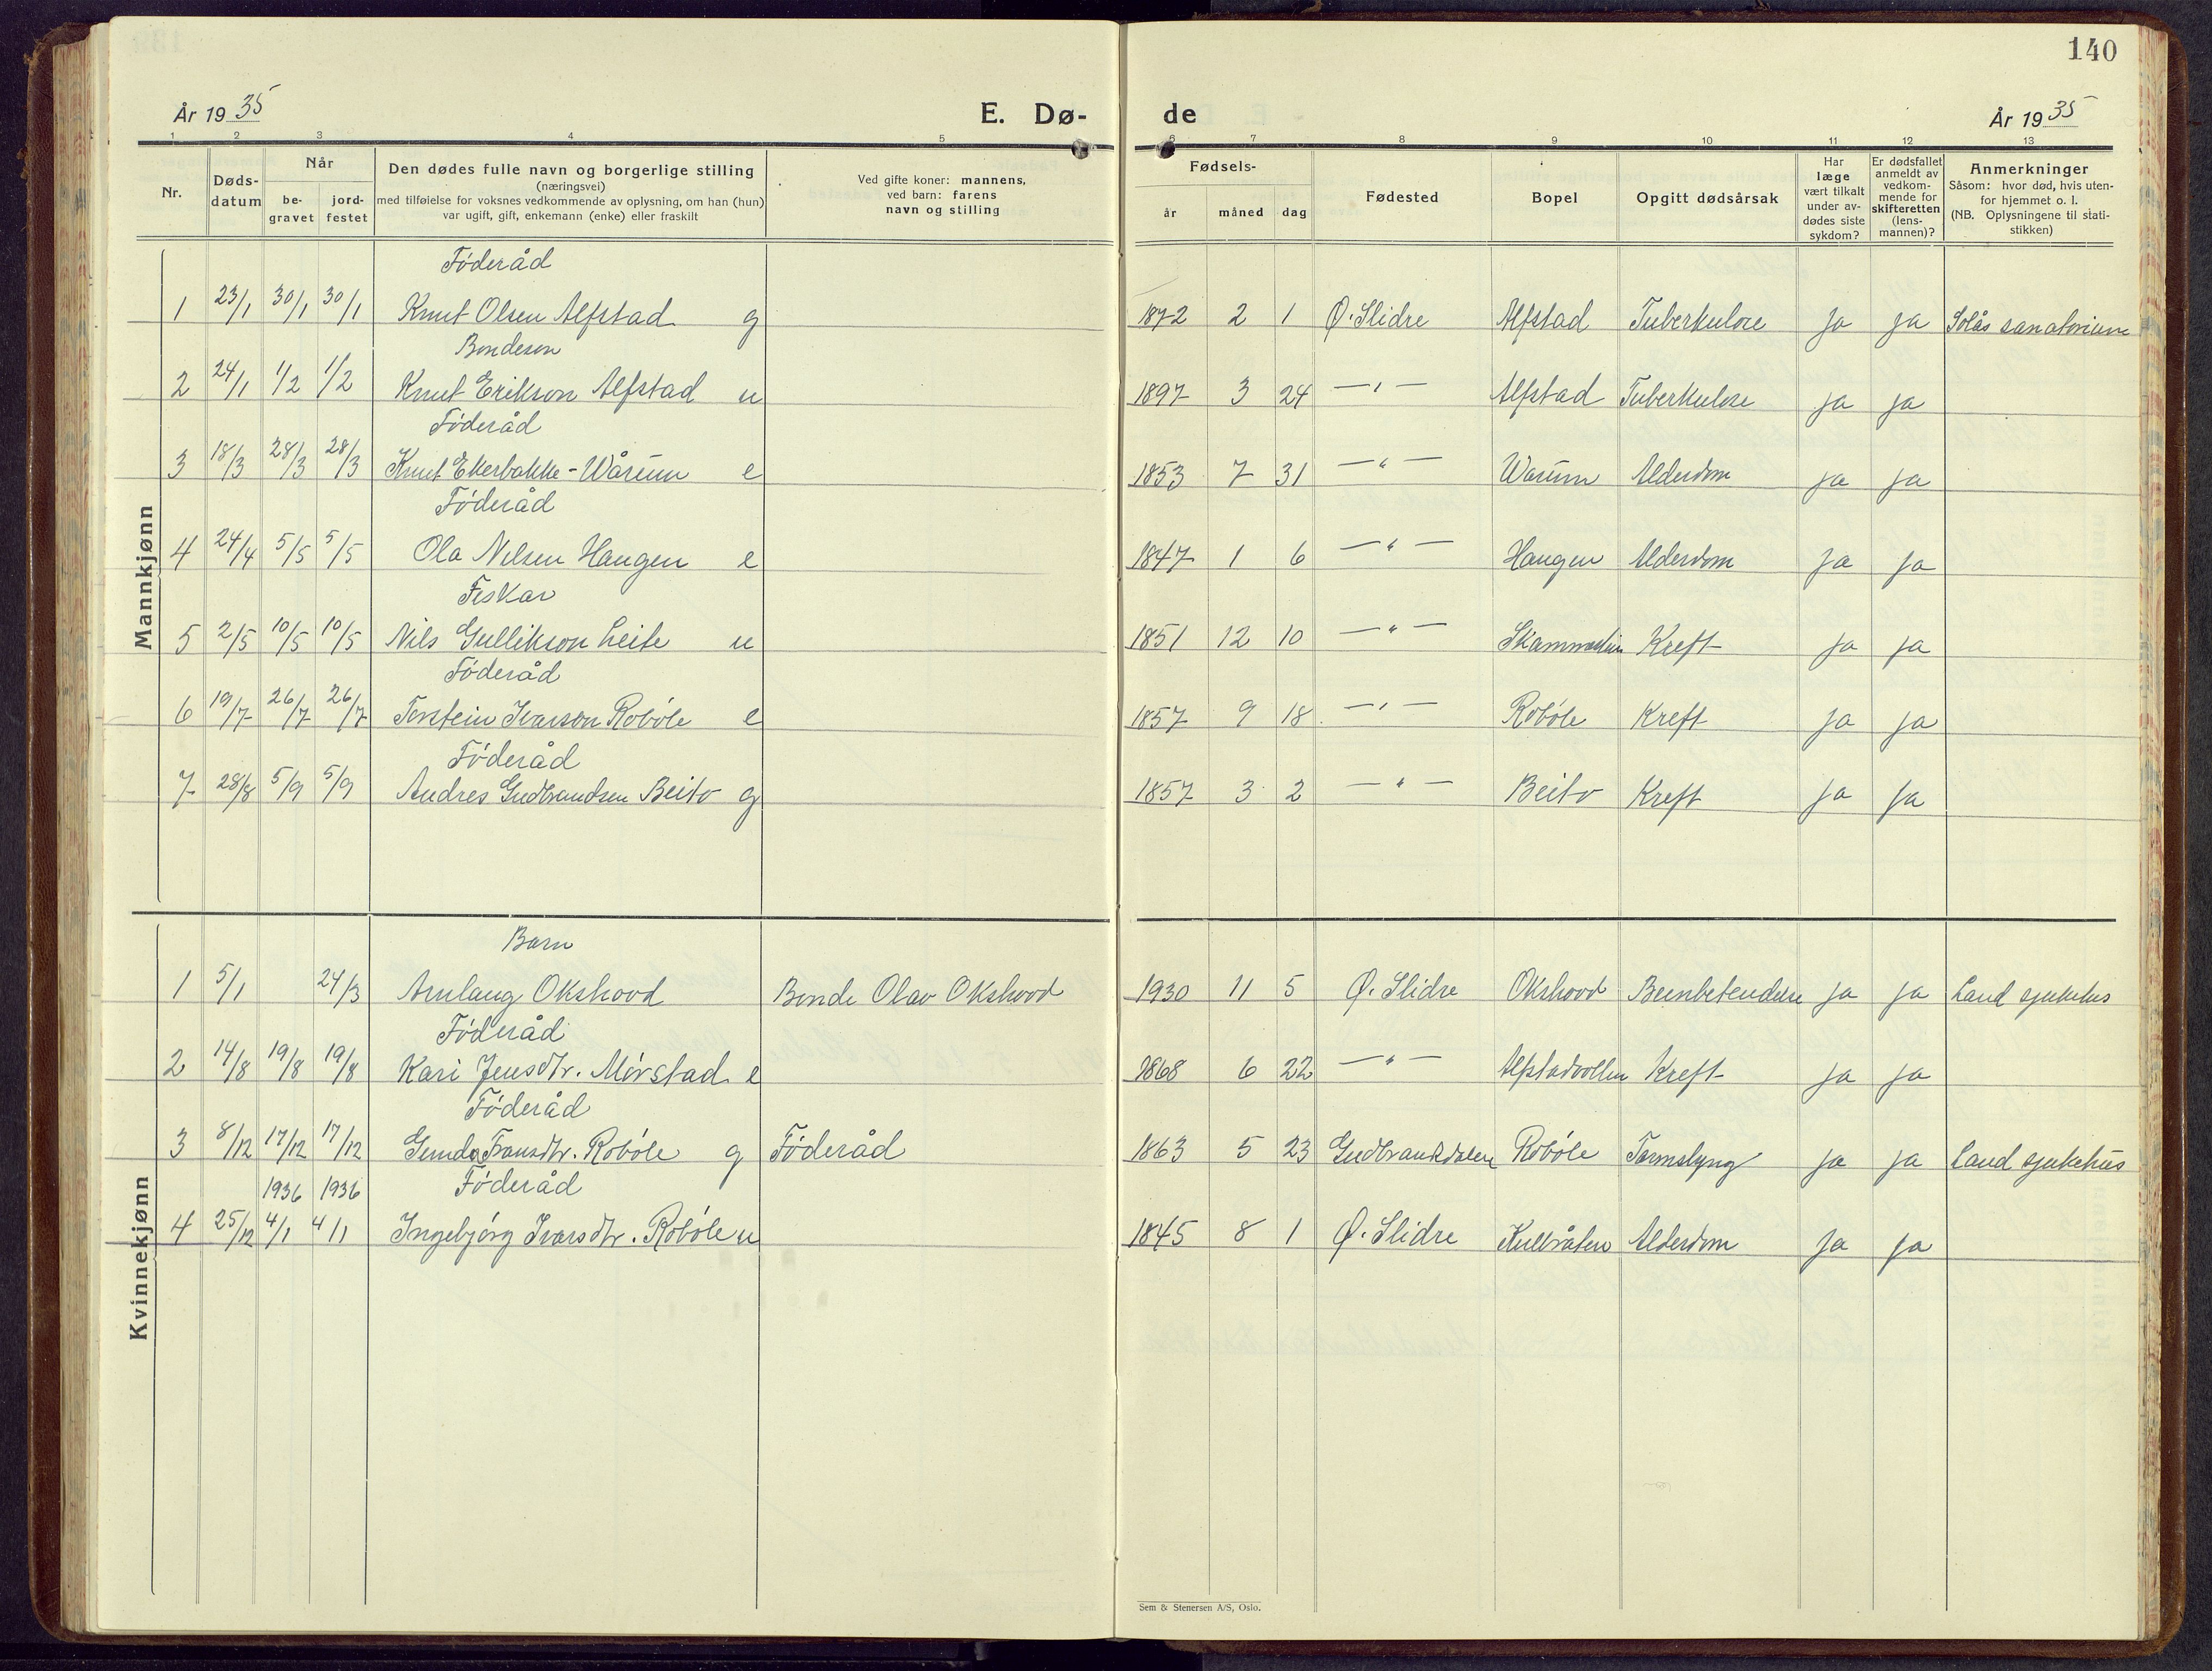 140
År 1935
E. Dø-
de
År 1935
1 2 3 4 5 6 7 8 9 10 11 12 13
Nr.
Dødsdatum
Når
begravet
jordfestet
Den dødes fulle navn og borgerlige stilling
(næringsvei)
med tilføielse for voksnes vedkommende av oplysning, om han (hun)
var ugift, gift, enkemann (enke) eller fraskilt
Ved gifte koner: mannens,
ved barn: farens
navn og stilling
Fødsels-
år måned dag
Fødested
Bopel
Opgitt dødsårsak
Har
læge
vært tilkalt
under av-
dødes siste
sykdom?
Er dødsfallet
anmeldt av
vedkom-
mende for
skifteretten
(lens-
mannen)?
Anmerkninger
Såsom: hvor død, hvis uten-
for hjemmet o. l.
(NB. Oplysningene til stati-
stikken)
Mannkjønn
Føderåd
1 23/1 30/1 30/1 Knut Olsen Alfstad g 1872 2 1 Ø. Slidre Alfstad Tuberkulose Ja Ja Solås sanatorium
Bondesøn
2 24/1 1/2 1/2 Knut Erikson Alfstad u 1897 3 24 —"— Alfstad Tuberkulose Ja Ja
Føderåd
3 18/3 28/3 28/3 Knut Ekerbakke-Wårum e 1853 7 31 —"— Warum Alderdom Ja Ja
Føderåd
4 24/4 5/5 5/5 Ola Nilsen Haugen e 1847 1 6 —"— Haugen Alderdom Ja Ja
Fiskar
5 2/5 10/5 10/5 Nils Gullikson Leite u 1851 12 10 —"— Kreft Ja Ja
Føderåd
6 19/7 26/7 26/7 Torstein Ivarson Robøle e 1857 9 18 —"— Robøle Kreft Ja Ja
Føderåd
7 28/8 5/9 5/9 Andres Gudbrandsen Beito g 1857 3 2 —"— Beito Kreft Ja Ja
Kvinnekjønn
Barn
1 5/1 24/3 Arnlaug Okshovd Bonde Olav Okshovd 1930 11 5 Ø. Slidre Okshovd Beinbetendelse Ja Ja Land sjukehus
Føderåd
2 14/8 19/8 19/8 Kari Jensdtr. Mørstad e 1868 6 22 —"— Alfstadvollen Kreft Ja Ja
Føderåd
3 8/12 17/12 17/12 Gunda Fransdtr. Robøle g Føderåd 1863 5 23 Gudbrandsdalen Robøle Tarmslyng Ja Ja Land sjukehus
1936 1936 Føderåd
4 25/12 4/1 4/1 Ingebjørg Ivarsdtr. Robøle u 1845 8 1 Ø. Slidre Alderdom Ja Ja
Sem & Stenersen A/S, Oslo.